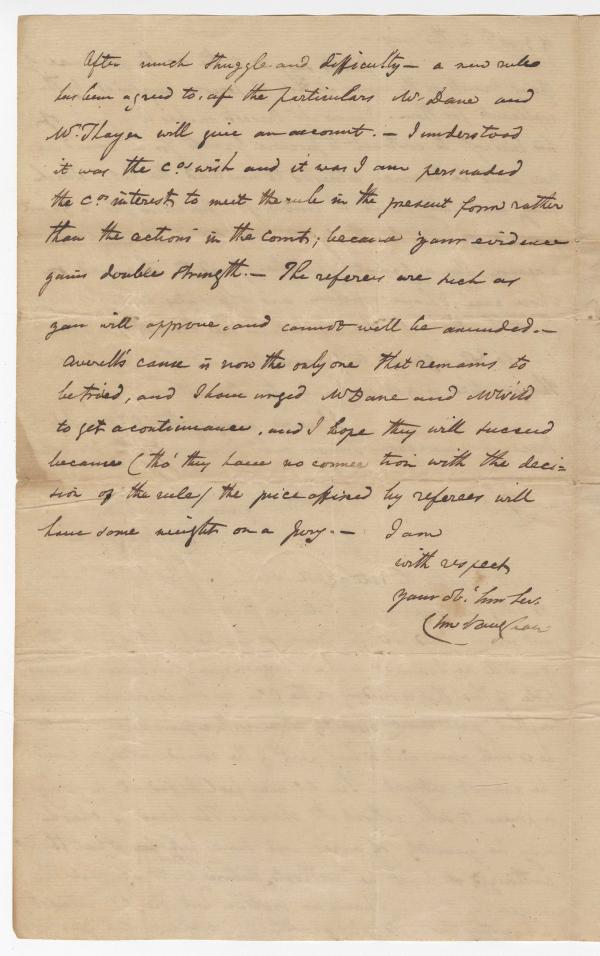 After much struggle and difficulty – a new rule
has been agreed to, of the particulars Mr Dane and
Mr Thayer will give an account. – I understood
it was the Cos wish and it was I am persuaded
the Cos interest, to meet the rule in the present form rather
than the actions in the Court; because your evidence
gains double strength. – The referees are such as
you will approve, and cannot will be amended. –
Averell's cause is now the only one that remains to
be tried, and I have urged Mr Dane and Mr Wild
to get a continuance, and I hope they will succeed
because (tho' they have no connection with the deci-
sion of the rule) the price affixed by referees will
have some weight on a Jury. – I am
with respect,
your ob.t hm Ser.
Chs Vaughan